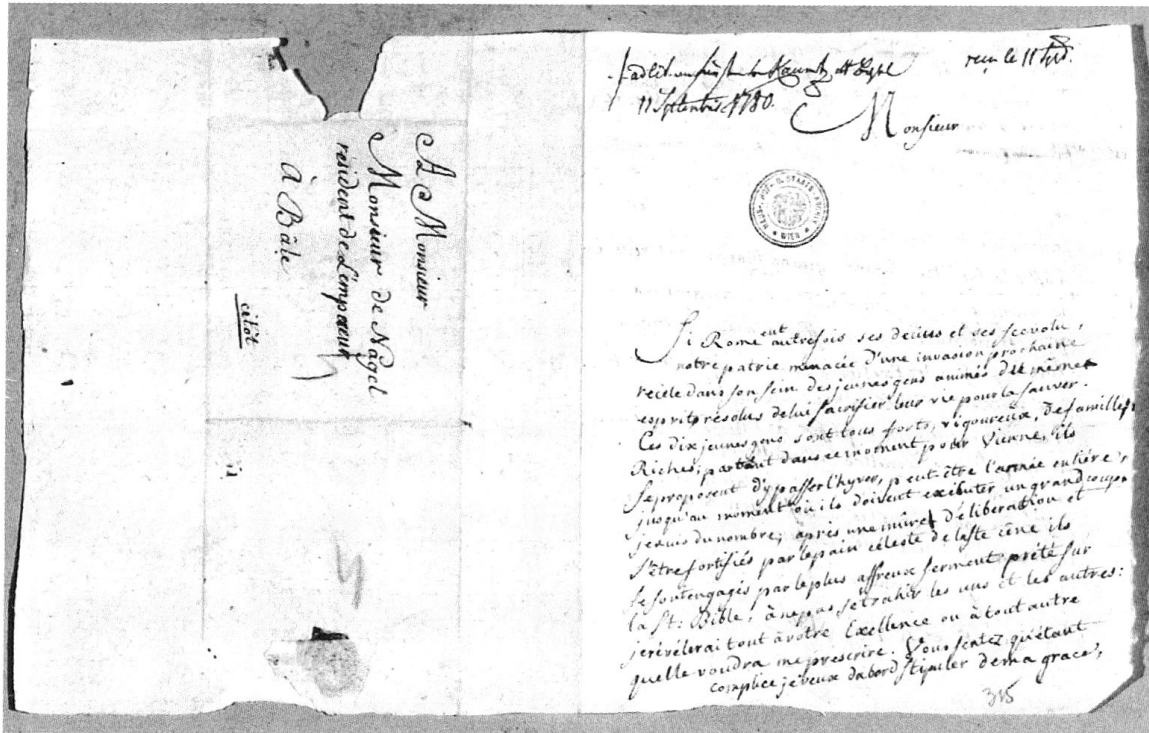 A Monsieur
Monsieur de Nagel
résident de L'empereur
à Bâle
citôt
reçu le 11
11 Septembre 1780.
Monsieur
HAUS-, HOF- U. STAATS-ARCHIV
WIEN
Si Rome eut autrefois ses decius et ses scevola,
notre patrie menacée d'une invasion prochaine
recèle dans son sein des jeunes gens animés du même
esprit résolus de lui sacrifier leur vie pour la sauver.
Ces dix jeunes gens sont tous forts, vigoureux, de familles
Riches; partent dans ce moment pour Vienne, ils
se proposent d'y passer l'hyver, peut être l'année entiére,
jusqu'au moment où ils doivent exécuter un grand coup
je suis du nombre; après une mûre déliberation et
s'être fortifiés par le pain céleste de la ste céne ils
se sont engagés par le plus affreux serment prété sur
la St: Bible, à ne pas se trahir les uns et les autres:
je révélerai tout à votre Excellence ou à tout autre
quelle voudra me prescrire. Vous sentez qu'étant
complice je veux dabord stipuler de ma grace,
315